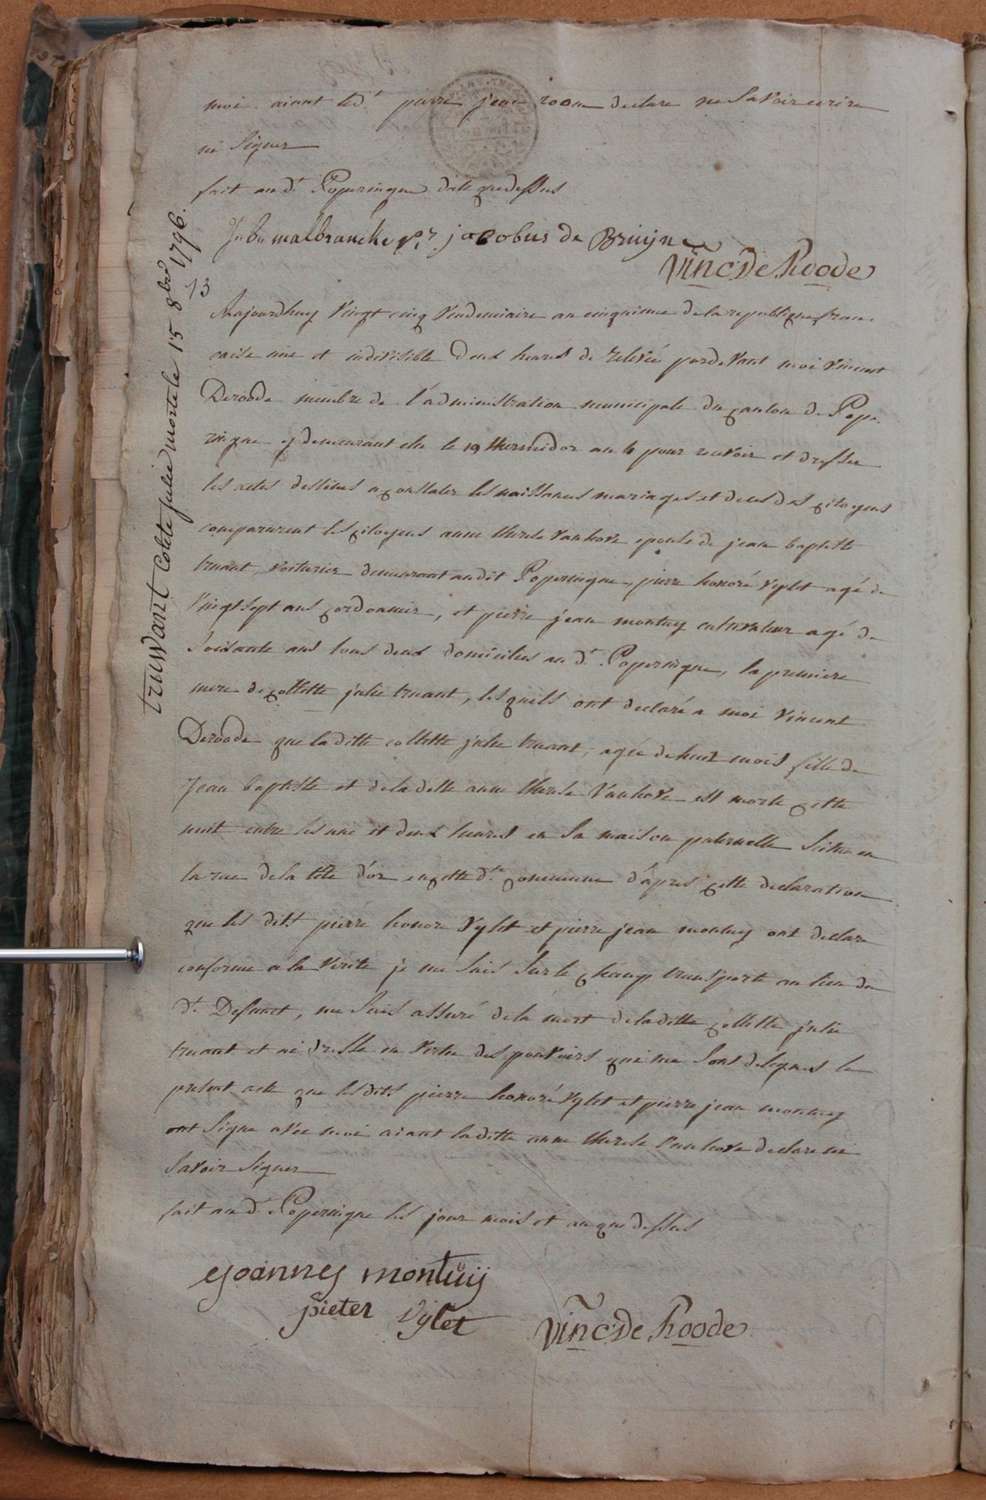 moi aiant led.t pierre jean room declare ne savoir ecrire
ni signer
fait aud.t Poperingue date que dessus
malbrancke jacobus de Bruijne
Vinc: De Roode
truwant Colete julie morte le 15 8bre 1796.
13
Aujourdhuy vingt cinq vendemiaire an cinquieme de la republique fran-
caise une et indivisible deux heures de relevée pardevant moi vincent
Deroode membre de l'administration municipale du canton de Pope-
ringue y demeurant elu le 19 thermidor an 4 pour recevoir et dresser
les actes destines a constater les naissances mariages et deces des citoyens
comparurent les citoyens anne therese vanhove epouse de jean baptiste
truant, voiturier demeurant audit Poperingue, pierre honoré vylet agé de
vingt sept ans cordonnier, et pierre jean montuy cultivateur agé de
soixante ans tous deux domicilies aud.t Poperingue, la premiere
mere de collette julie truant, les quels ont declaré a moi vincent
Deroode que la ditte collette julie truant, agée de huit mois fille de
jean baptiste et de la ditte anne therese vanhove est morte cette
nuit entre les une et deux heures en sa maison paternelle scitue en
la rue de la tête d'or en cette d.te commune d'après cette declaration
que les dits pierre honore vylet et pierre jean montuy ont declare
conforme a la verite je me suis sur le champ transporte au lieu du
d.t Defunct, me suis assuré de la mort de la ditte collette julie
truant et ai dresse en vertu des pouvoirs qui me sont delegues le
present acte que les dits pierre honoré vylet et pierre jean montuy
ont signe avec moi aiant la ditte anne therese vanhove declare ne
savoir signer
fait aud.t Poperingue les jour mois et an que dessus
joannes montuij
pieter vylet Vinc: De Roode